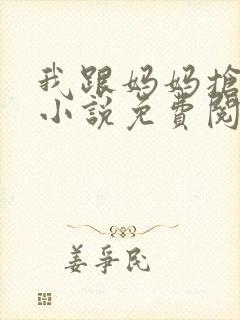 我跟妈妈搶
小説免費閱
姜爭民